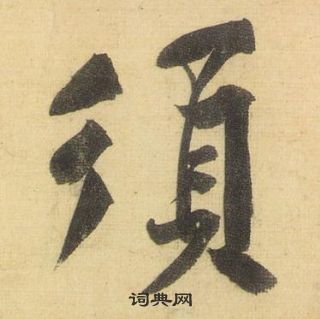 須
词典网